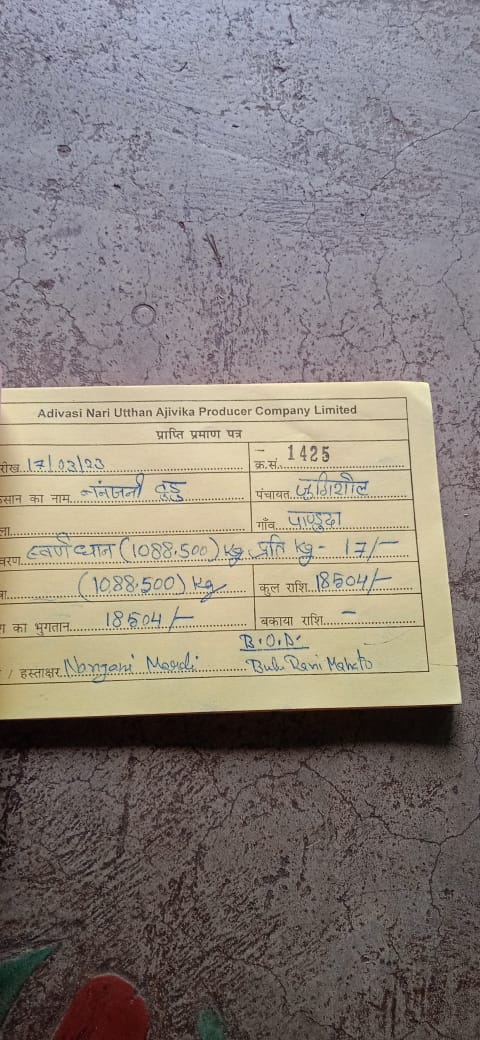 Adivasi Nari Utthan Ajivika Producer Company Limited
प्राप्ति प्रमाण पत्र
रीख..17/03/23 क्र.सं. 1425
सान का नाम. नंनजनी टुडु पंचायत. जुगिशोल
ला गाँव. पाण्डुदा
वरण. स्वर्ण धान (1088.500) kg, प्रति kg - 17/-
(1088.500) kg कुल राशि. 18504/-
ा का भुगतान. 18504/- बकाया राशि. -
B.O.D.
/ हस्ताक्षर. Nangani Mardi Bulu Rani Mahato